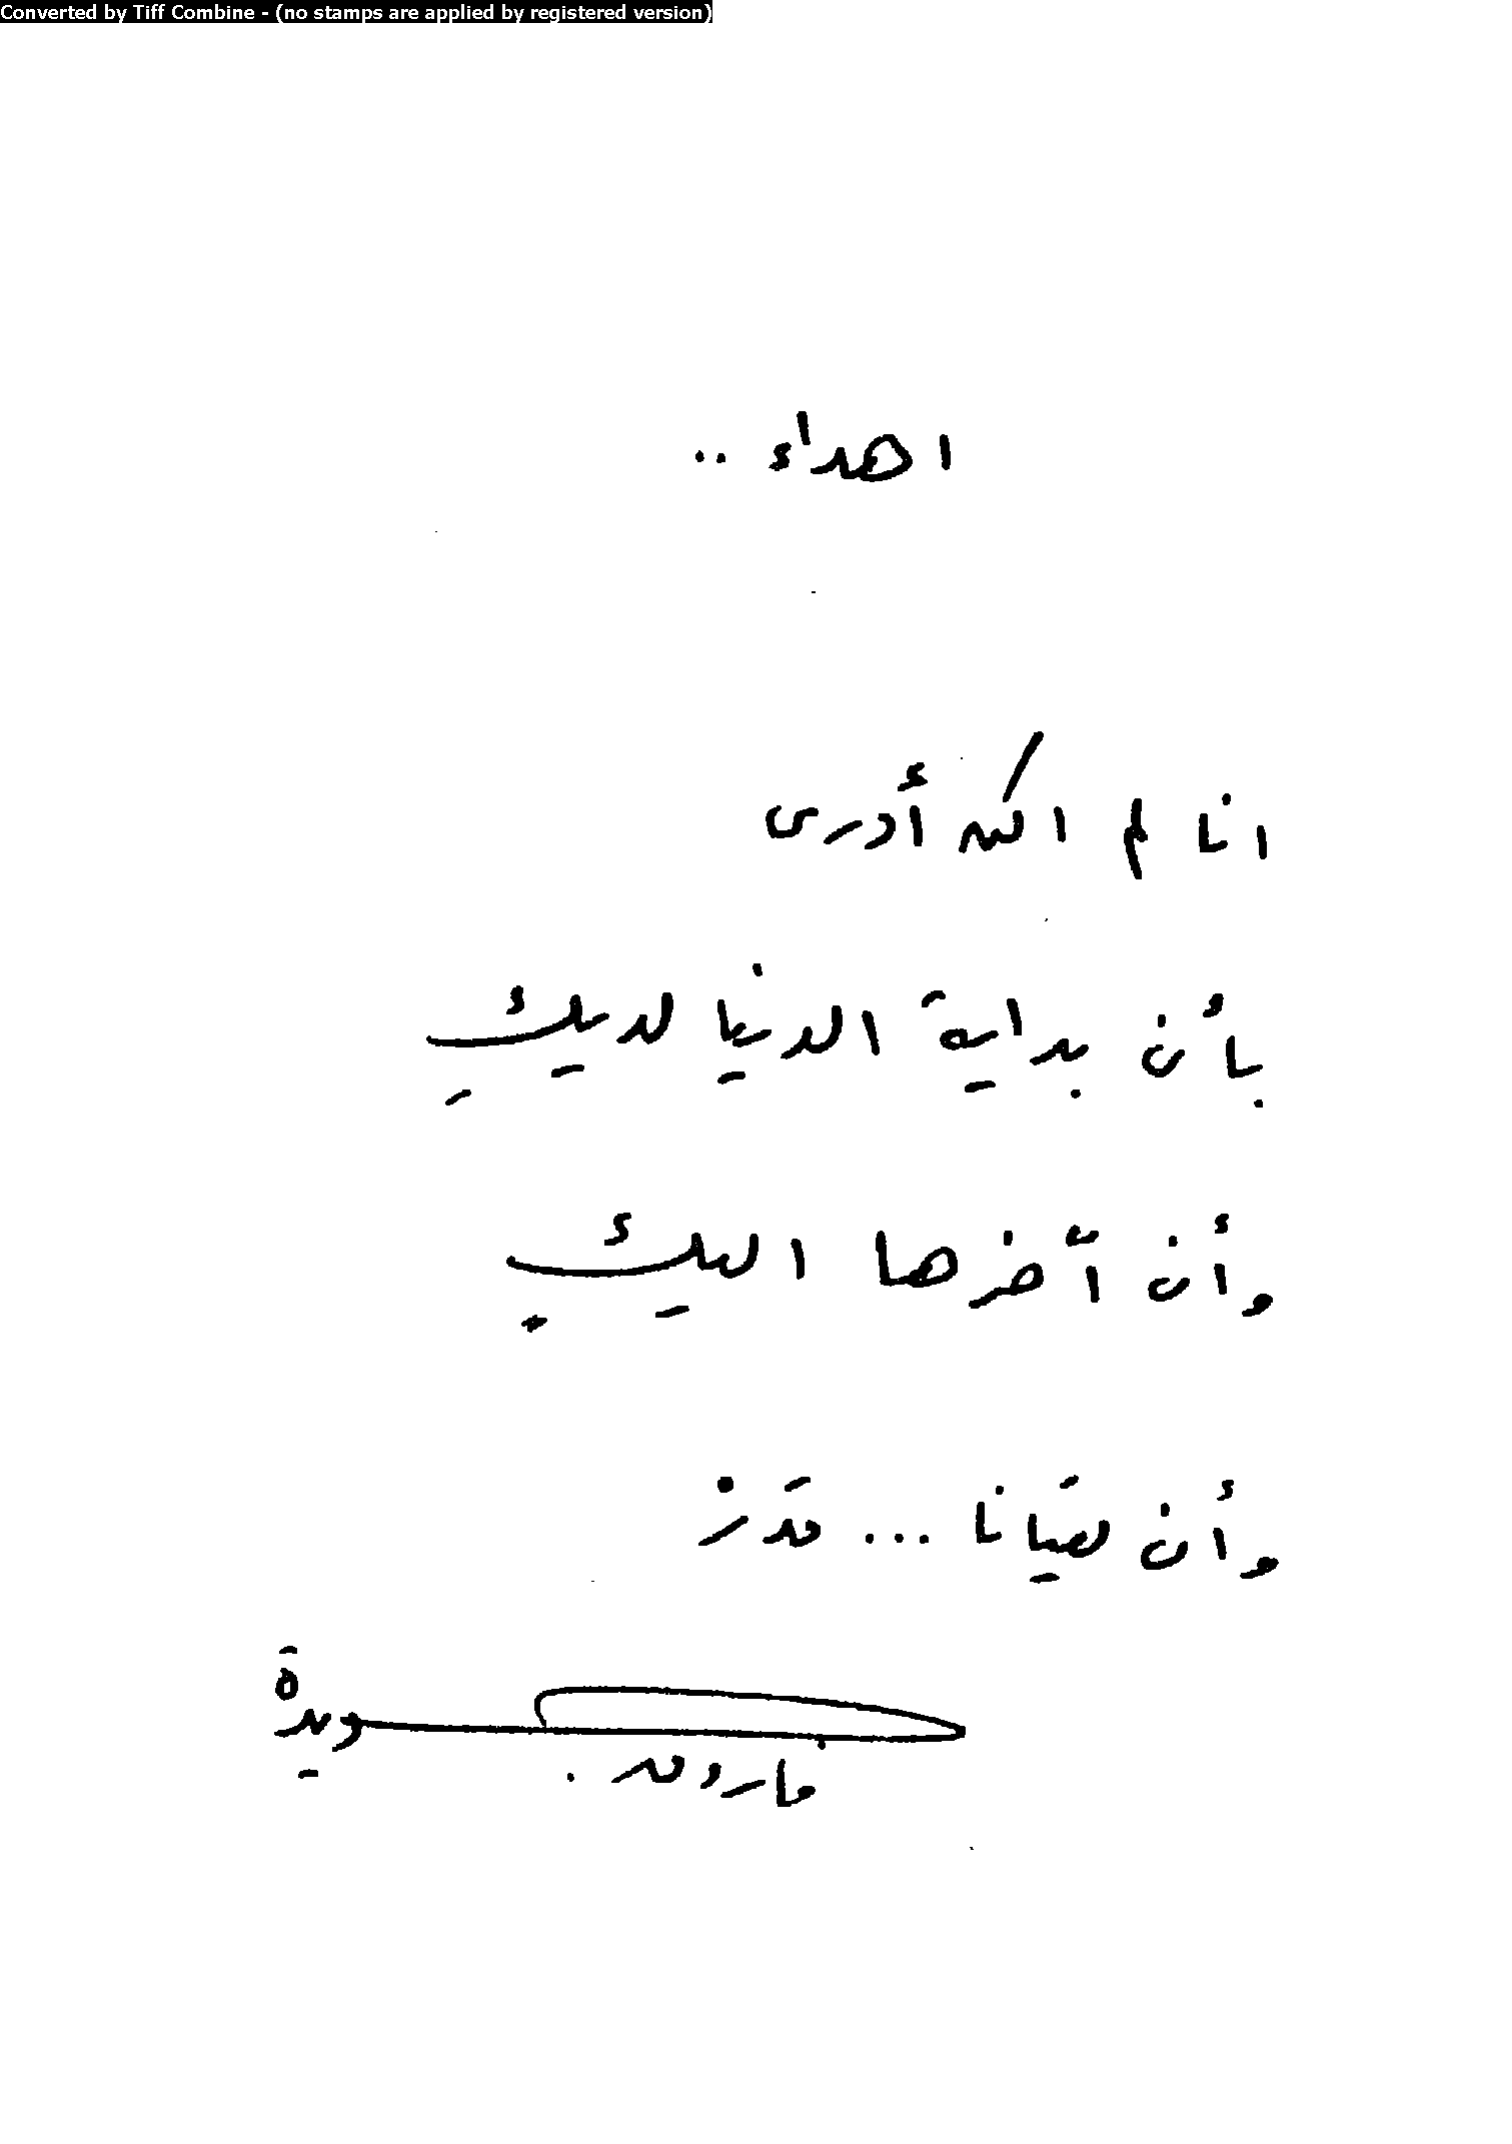 Converted by Tiff Combine - (no stamps are applied by registered version)
اهداء ..
انا لم اكن أدرى
بأن بداية الدنيا لديكِ
وأن آخرها اليكِ
وأن لقيانا ... قدر
فاروق جويدة